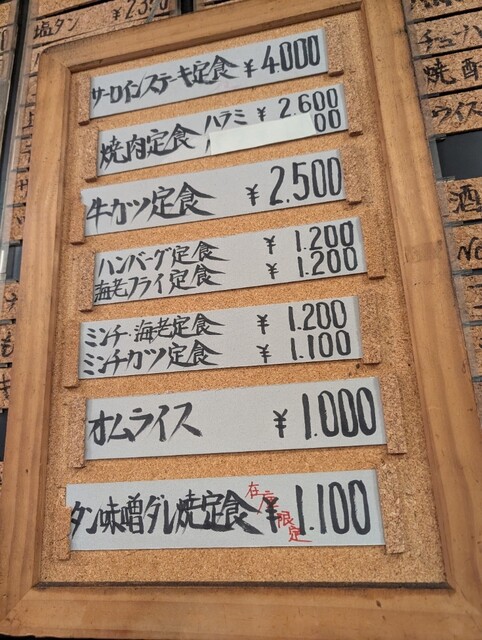 塩タン ¥2.350
サーロインステーキ定食 ¥4.000
焼肉定食 ハラミ ¥2.600
00
牛カツ定食 ¥2.500
ハンバーグ定食 ¥1.200
海老フライ定食 ¥1.200
ミンチ・海老定食 ¥1.200
ミンチカツ定食 ¥1.100
オムライス ¥1.000
タン味噌ダレ焼定食 ¥1.100
在庫限定
チューハ
焼酎
ウイス
酒
No